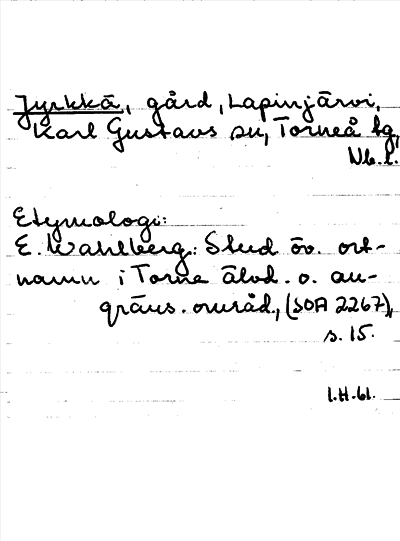 Jyrkkä, gård, Lapinjärvi,
Karl Gustavs sn, Torneå tg,
Nb. l.
Etymologi:
E. Wahlberg: Stud öv. ort-
namn i Torne älvd. o. an-
gräns. områd., (SOA 2267),
s. 15.
I.H. 61.